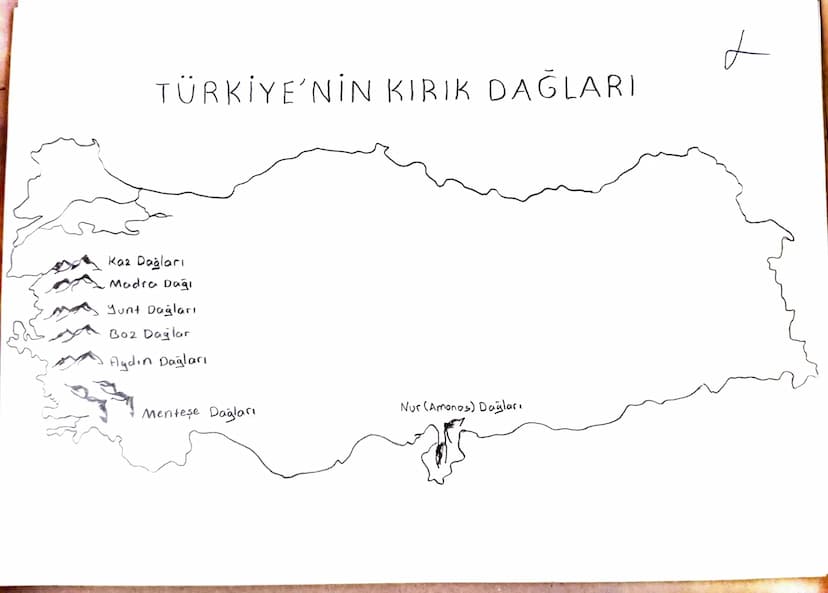 TÜRKİYE'NİN KIRIK DAĞLARI
Kaz Dağları
Madra Dağı
Yunt Dağları
Boz Dağlar
Aydın Dağları
Menteşe Dağları
Nur (Amanos) Dağları